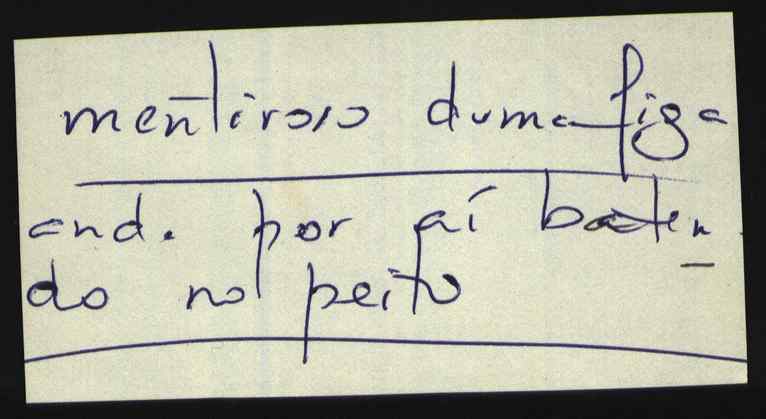 mentiroso duma figa
anda por aí baten-
do no peito